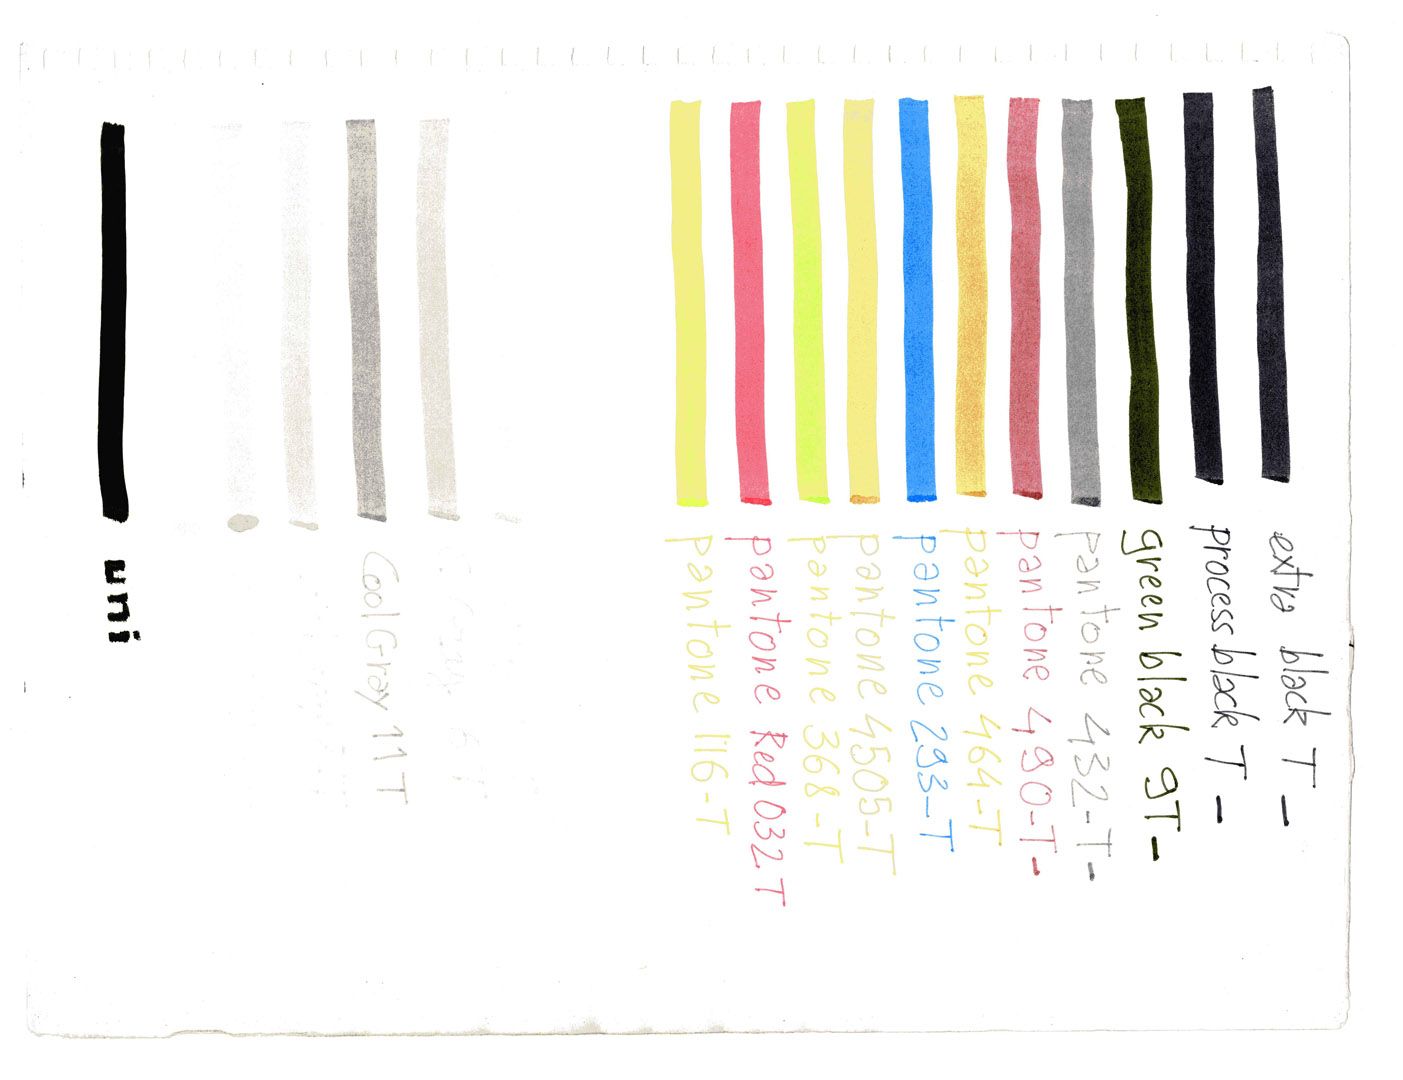 extra black T -
process black T -
green black 9T -
pantone 432-T -
pantone 490-T -
pantone 464-T
pantone 293-T
pantone 4505-T
pantone 368-T
pantone Red 032 T
pantone 116-T
Cool Gray 11 T
uni